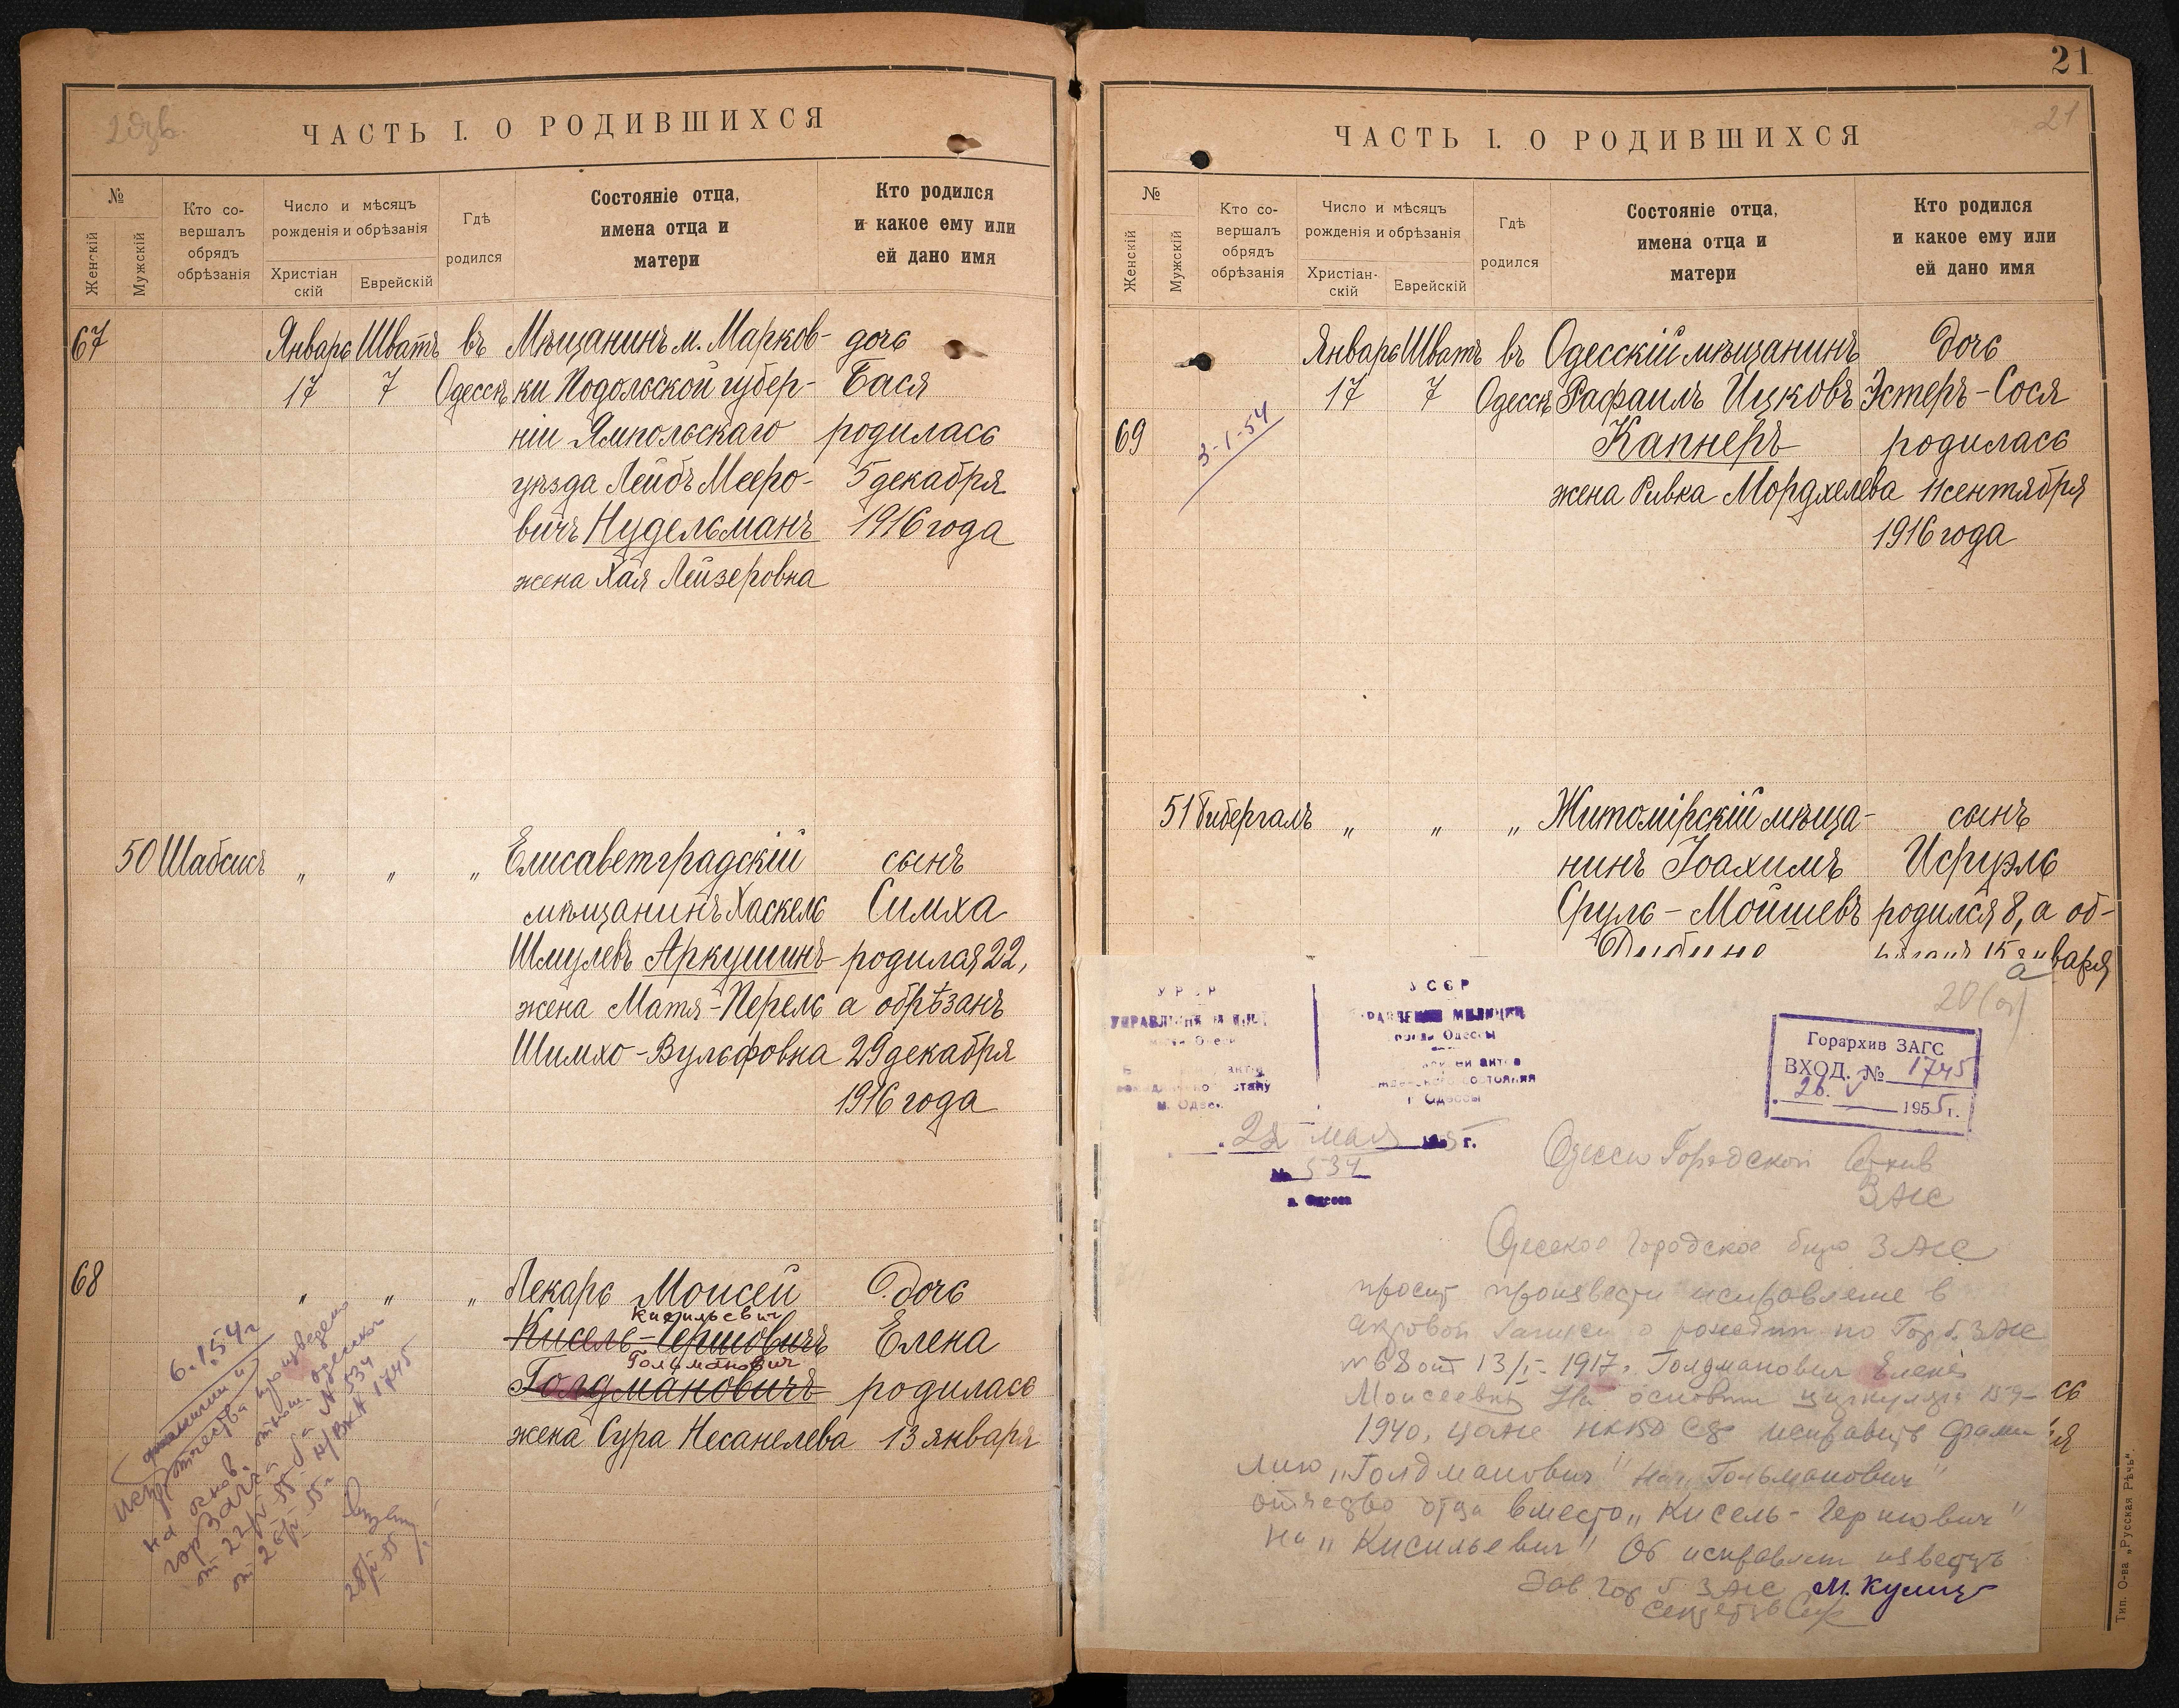 2 дуб.
ЧАСТЬ I. О РОДИВШИХСЯ
№
Женскій
Мужскій
Кто со-
вершалъ
обрядъ
обрѣзанія
Число и мѣсяцъ
рожденія и обрѣзанія
Христіан
скій
Еврейскій
Гдѣ
родился
Состояніе отца,
имена отца и
матери
Кто родился
и какое ему или
ей дано имя
67 Январь Шватъ въ Мѣщанинъ м. Марков- дочь
17 7 Одессѣ ки Подольской губер- Бася
ніи Ямпольскаго родилась
уѣзда Лейбъ Мееро- 5 декабря
вичъ Нудельманъ 1916 года
жена Хая Лейзеровна
50 Шабсисъ " " " Елисаветградскій сынъ
мѣщанинъ Хаскель Симха
Шмулевъ Аркушинъ родился 22,
жена Матя-Перель а обрѣзанъ
Шимхо-Вульфовна 29 декабря
1916 года
68 " " " Лекарь Моисей дочь
Кисильевич
Кисель-Гершовичъ Елена
Гольманович
Голдмановичъ родилась
жена Сура Несанелева 13 января
6.1.54 г
фамилии и
отчества произведено
на основ. отнош. одесског
гор ЗАГСа
от 22/V-55 г. № 534
от 26/V-55 г. Вх № 1745
28/V-55
21
21
ЧАСТЬ I. О РОДИВШИХСЯ
№
Женскій
Мужскій
Кто со-
вершалъ
обрядъ
обрѣзанія
Число и мѣсяцъ
рожденія и обрѣзанія
Христіан-
скій
Еврейскій
Гдѣ
родился
Состояніе отца,
имена отца и
матери
Кто родился
и какое ему или
ей дано имя
Январь Шватъ въ Одесскій мѣщанинъ дочь
17 7 Одессѣ Рафаилъ Ицковъ Эстеръ-Сося
69 3-1-54 Капнеръ родилась
жена Ривка Мордхелева 11 сентября
1916 года
51 Гибергалъ " " " Житомірскій мѣща- сынъ
нинъ Іоахимъ Исруэль
Сруль-Мойшевъ родился 8, а об-
15 января
20 (об)
УССР
УПРАВЛЕНИЕ МИЛИЦИИ
города Одессы
гражданского состояния
г. Одессы
22 мая 1955 г.
№ 534
г. Одесса
Горархив ЗАГС
ВХОД. № 1745
26. V 1955 г.
Одесский Городской Архив
ЗАГС
Одесское городское бюро ЗАГС
просит произвести исправление в
актовой записи о рождении по Гор б. ЗАГС
№ 68 от 13/I-1917 г. Голдманович Елены
Моисеевны На основании циркуляра 159-
1940, НКВД СССР исправить фами
лию „Голдманович" на „Гольманович"
отчество отца вместо „Кисель-Гершович"
на „Кисильевич" Об исправлении известить
Зав Гор б ЗАГС М. Кулиш
секретарь
сь
ія
Тип. О-ва „Русская Рѣчь".